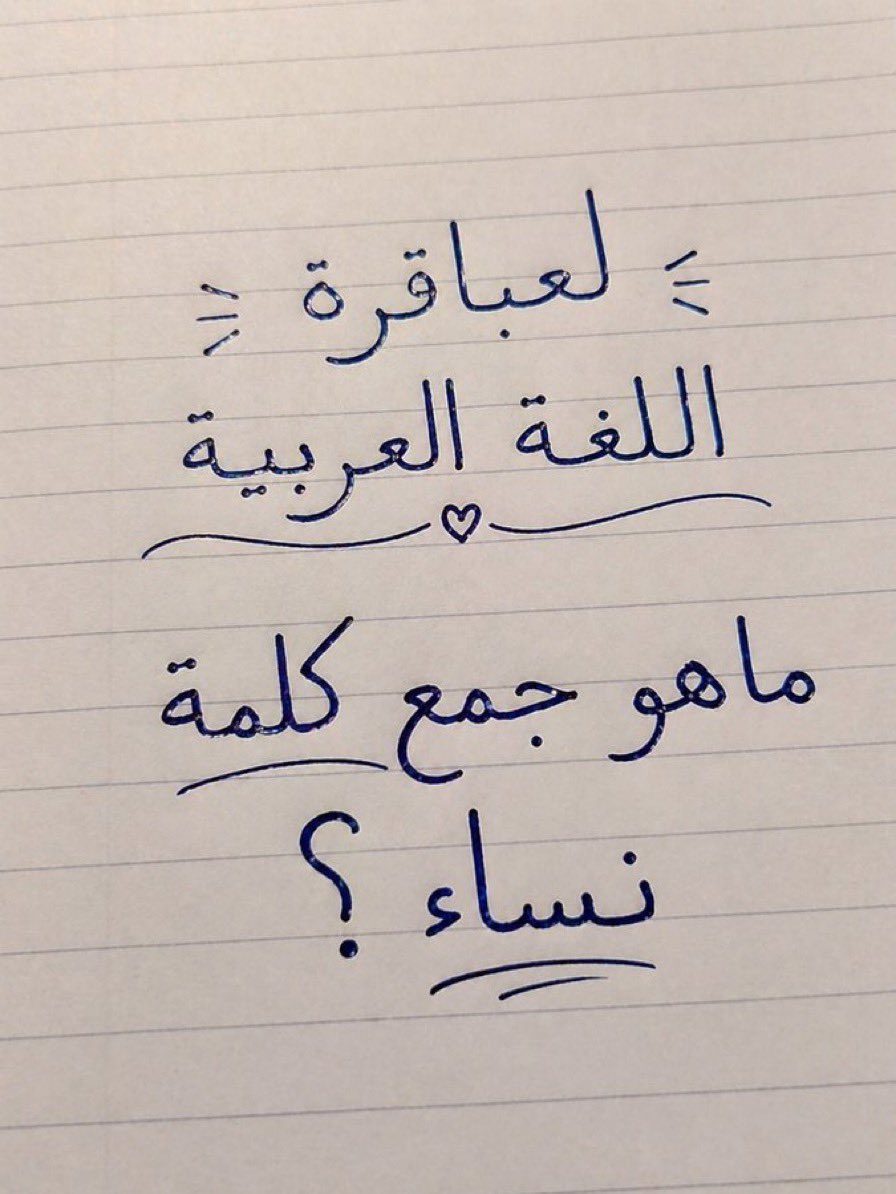 لعباقرة
اللغة العربية
ماهو جمع كلمة
نساء ؟